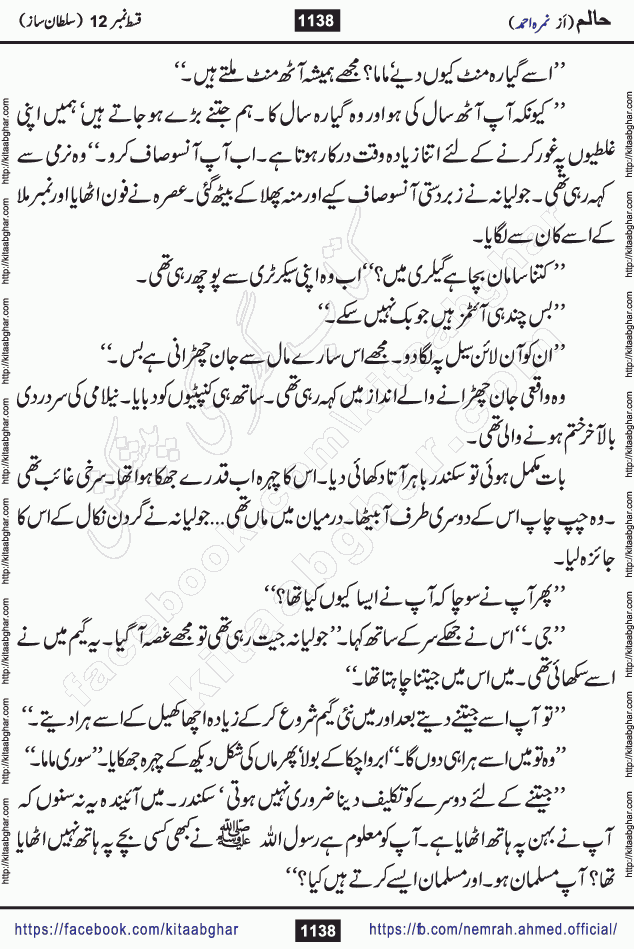 حالم (از نمرہ احمد) 1138 قسط نمبر 12 (سلطان ساز)
’’اسے گیارہ منٹ کیوں دیے‘ ماما؟ مجھے ہمیشہ آٹھ منٹ ملتے ہیں۔‘‘
’’کیونکہ آپ آٹھ سال کی ہو اور وہ گیارہ سال کا۔ ہم جتنے بڑے ہو جاتے ہیں‘ ہمیں اپنی
غلطیوں پہ غور کرنے کے لئے اتنا زیادہ وقت درکار ہوتا ہے۔ اب آپ آنسو صاف کرو۔‘‘ وہ نرمی سے
کہہ رہی تھی۔ جولیانہ نے زبردستی آنسو صاف کیے اور منہ پھلا کے بیٹھ گئی۔ عصرہ نے فون اٹھایا اور نمبر ملا
کے اسے کان سے لگایا۔
’’کتنا سامان بچا ہے گیلری میں؟‘‘ اب وہ اپنی سیکرٹری سے پوچھ رہی تھی۔
’’بس چند ہی آئٹمز ہیں جو بک نہیں سکے۔‘‘
’’ان کو آن لائن سیل پہ لگا دو۔ مجھے اس سارے مال سے جان چھڑانی ہے بس۔‘‘
وہ واقعی جان چھڑانے والے انداز میں کہہ رہی تھی۔ ساتھ ہی کنپٹیوں کو دبایا۔ نیلامی کی سردردی
بالآخر ختم ہونے والی تھی۔
بات مکمل ہوئی تو سکندر باہر آتا دکھائی دیا۔ اس کا چہرہ اب قدرے جھکا ہوا تھا۔ سرخی غائب تھی
۔ وہ چپ چاپ اس کے دوسری طرف آ بیٹھا۔ درمیان میں ماں تھی... جولیانہ نے گردن نکال کے اس کا
جائزہ لیا۔
’’پھر آپ نے سوچا کہ آپ نے ایسا کیوں کیا تھا؟‘‘
’’جی۔‘‘ اس نے جھکے سر کے ساتھ کہا۔ ’’جولیانہ جیت رہی تھی تو مجھے غصہ آ گیا۔ یہ گیم میں نے
اسے سکھائی تھی۔ میں اس میں جیتنا چاہتا تھا۔‘‘
’’تو آپ اسے جیتنے دیتے بعد اور میں نئی گیم شروع کر کے زیادہ اچھا کھیل کے اسے ہرا دیتے۔‘‘
’’وہ تو میں اسے ہرا ہی دوں گا۔‘‘ ابرو اچکا کے بولا‘ پھر ماں کی شکل دیکھ کے چہرہ جھکایا۔ ’’سوری ماما۔‘‘
’’جیتنے کے لئے دوسرے کو تکلیف دینا ضروری نہیں ہوتی‘ سکندر۔ میں آئیندہ یہ نہ سنوں کہ
آپ نے بہن پہ ہاتھ اٹھایا ہے۔ آپ کو معلوم ہے رسول اللہ ﷺ نے کبھی کسی بچے پہ ہاتھ نہیں اٹھایا
تھا؟ آپ مسلمان ہو۔ اور مسلمان ایسے کرتے ہیں کیا؟‘‘
https://facebook.com/kitaabghar 1138 https://fb.com/nemrah.ahmed.official/
http://kitaabghar.com
facebook.com/kitaabghar
kitaabghar.com
کتاب گھر کی پیشکش